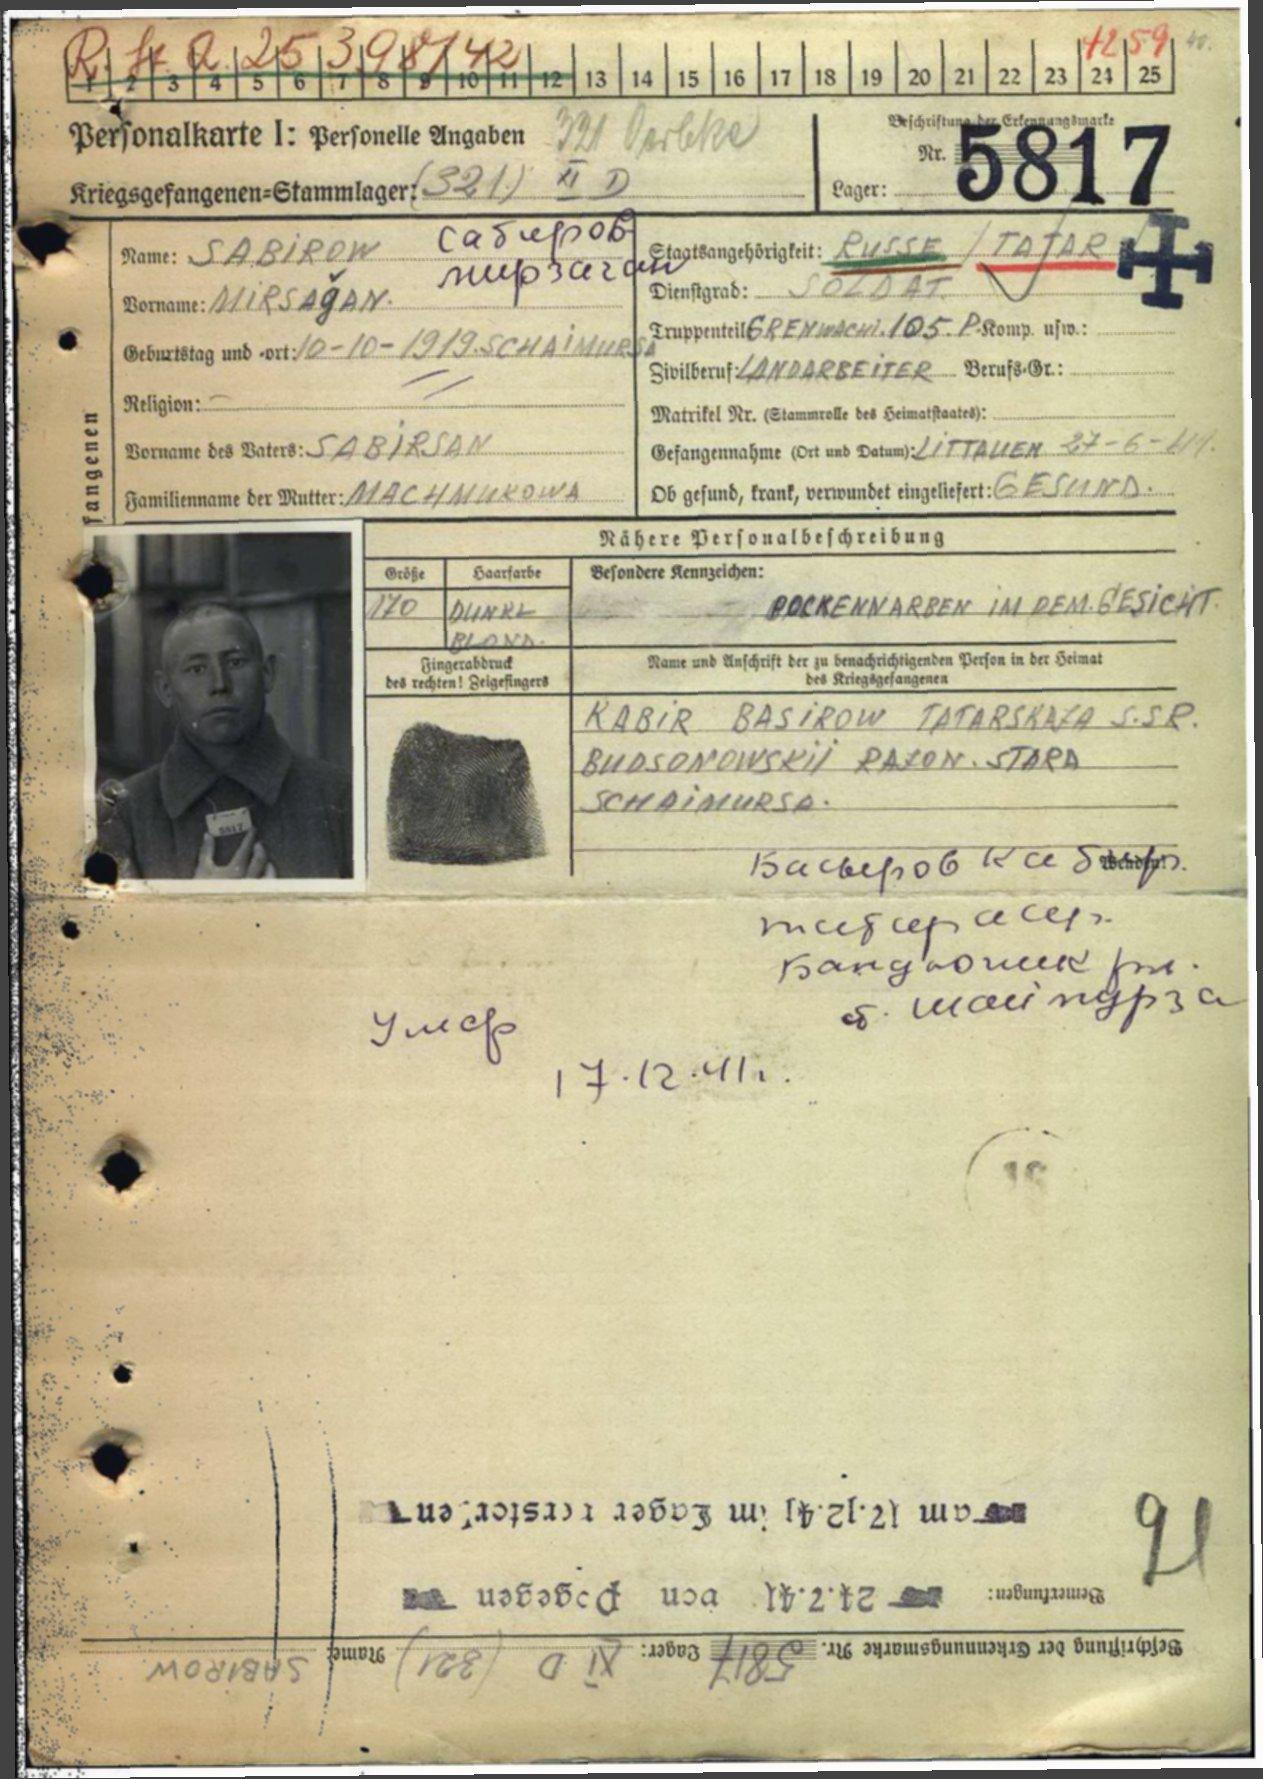 R. St. A. 25 398/42
42 59
1 2 3 4 5 6 7 8 9 10 11 12 13 14 15 16 17 18 19 20 21 22 23 24 25
Personalkarte I: Personelle Angaben 321 Oerbke
Kriegsgefangenen=Stammlager: (321) XI D
Beschriftung der Erkennungsmarke
Nr. 5817
Lager:
fangenen
Name: SABIROW
сабиров
мирзаган
Vorname: MIRSAğAN.
Geburtstag und -ort: 10-10-1919. SCHAIMURSA
Religion: —
Vorname des Vaters: SABIRSAN
Familienname der Mutter: MACHMUKOWA
Staatsangehörigkeit: RUSSE / TATAR
Dienstgrad: SOLDAT.
Truppenteil: GRENWACHI. 105. P. Komp. usw.:
Zivilberuf: LANDARBEITER Berufs-Gr.:
Matrikel Nr. (Stammrolle des Heimatstaates):
Gefangennahme (Ort und Datum): LITTAUEN 27-6-41.
Ob gesund, krank, verwundet eingeliefert: GESUND.
Nähere Personalbeschreibung
Größe Haarfarbe Besondere Kennzeichen:
170 DUNKL BLOND.
POCKENNARBEN IM DEM. GESICHT.
Fingerabdruck
des rechten! Zeigefingers
Name und Anschrift der zu benachrichtigenden Person in der Heimat
des Kriegsgefangenen
5817
KABIR BASIROW TATARSKAJA S.SR.
BUDSONOWSKIJ RAJON. STARA
SCHAIMURSA.
Wenden!
Басыров Кабир.
татар асср.
р-н.
с. Шаймурза
Умер
17.12.41г.
16
am 17.12.41 im Lager verstorben
Bemerkungen: 24.7.41 von Pogegen
91
Beschriftung der Erkennungsmarke Nr. 5817 Lager: XI D (321) Name: SABIROW